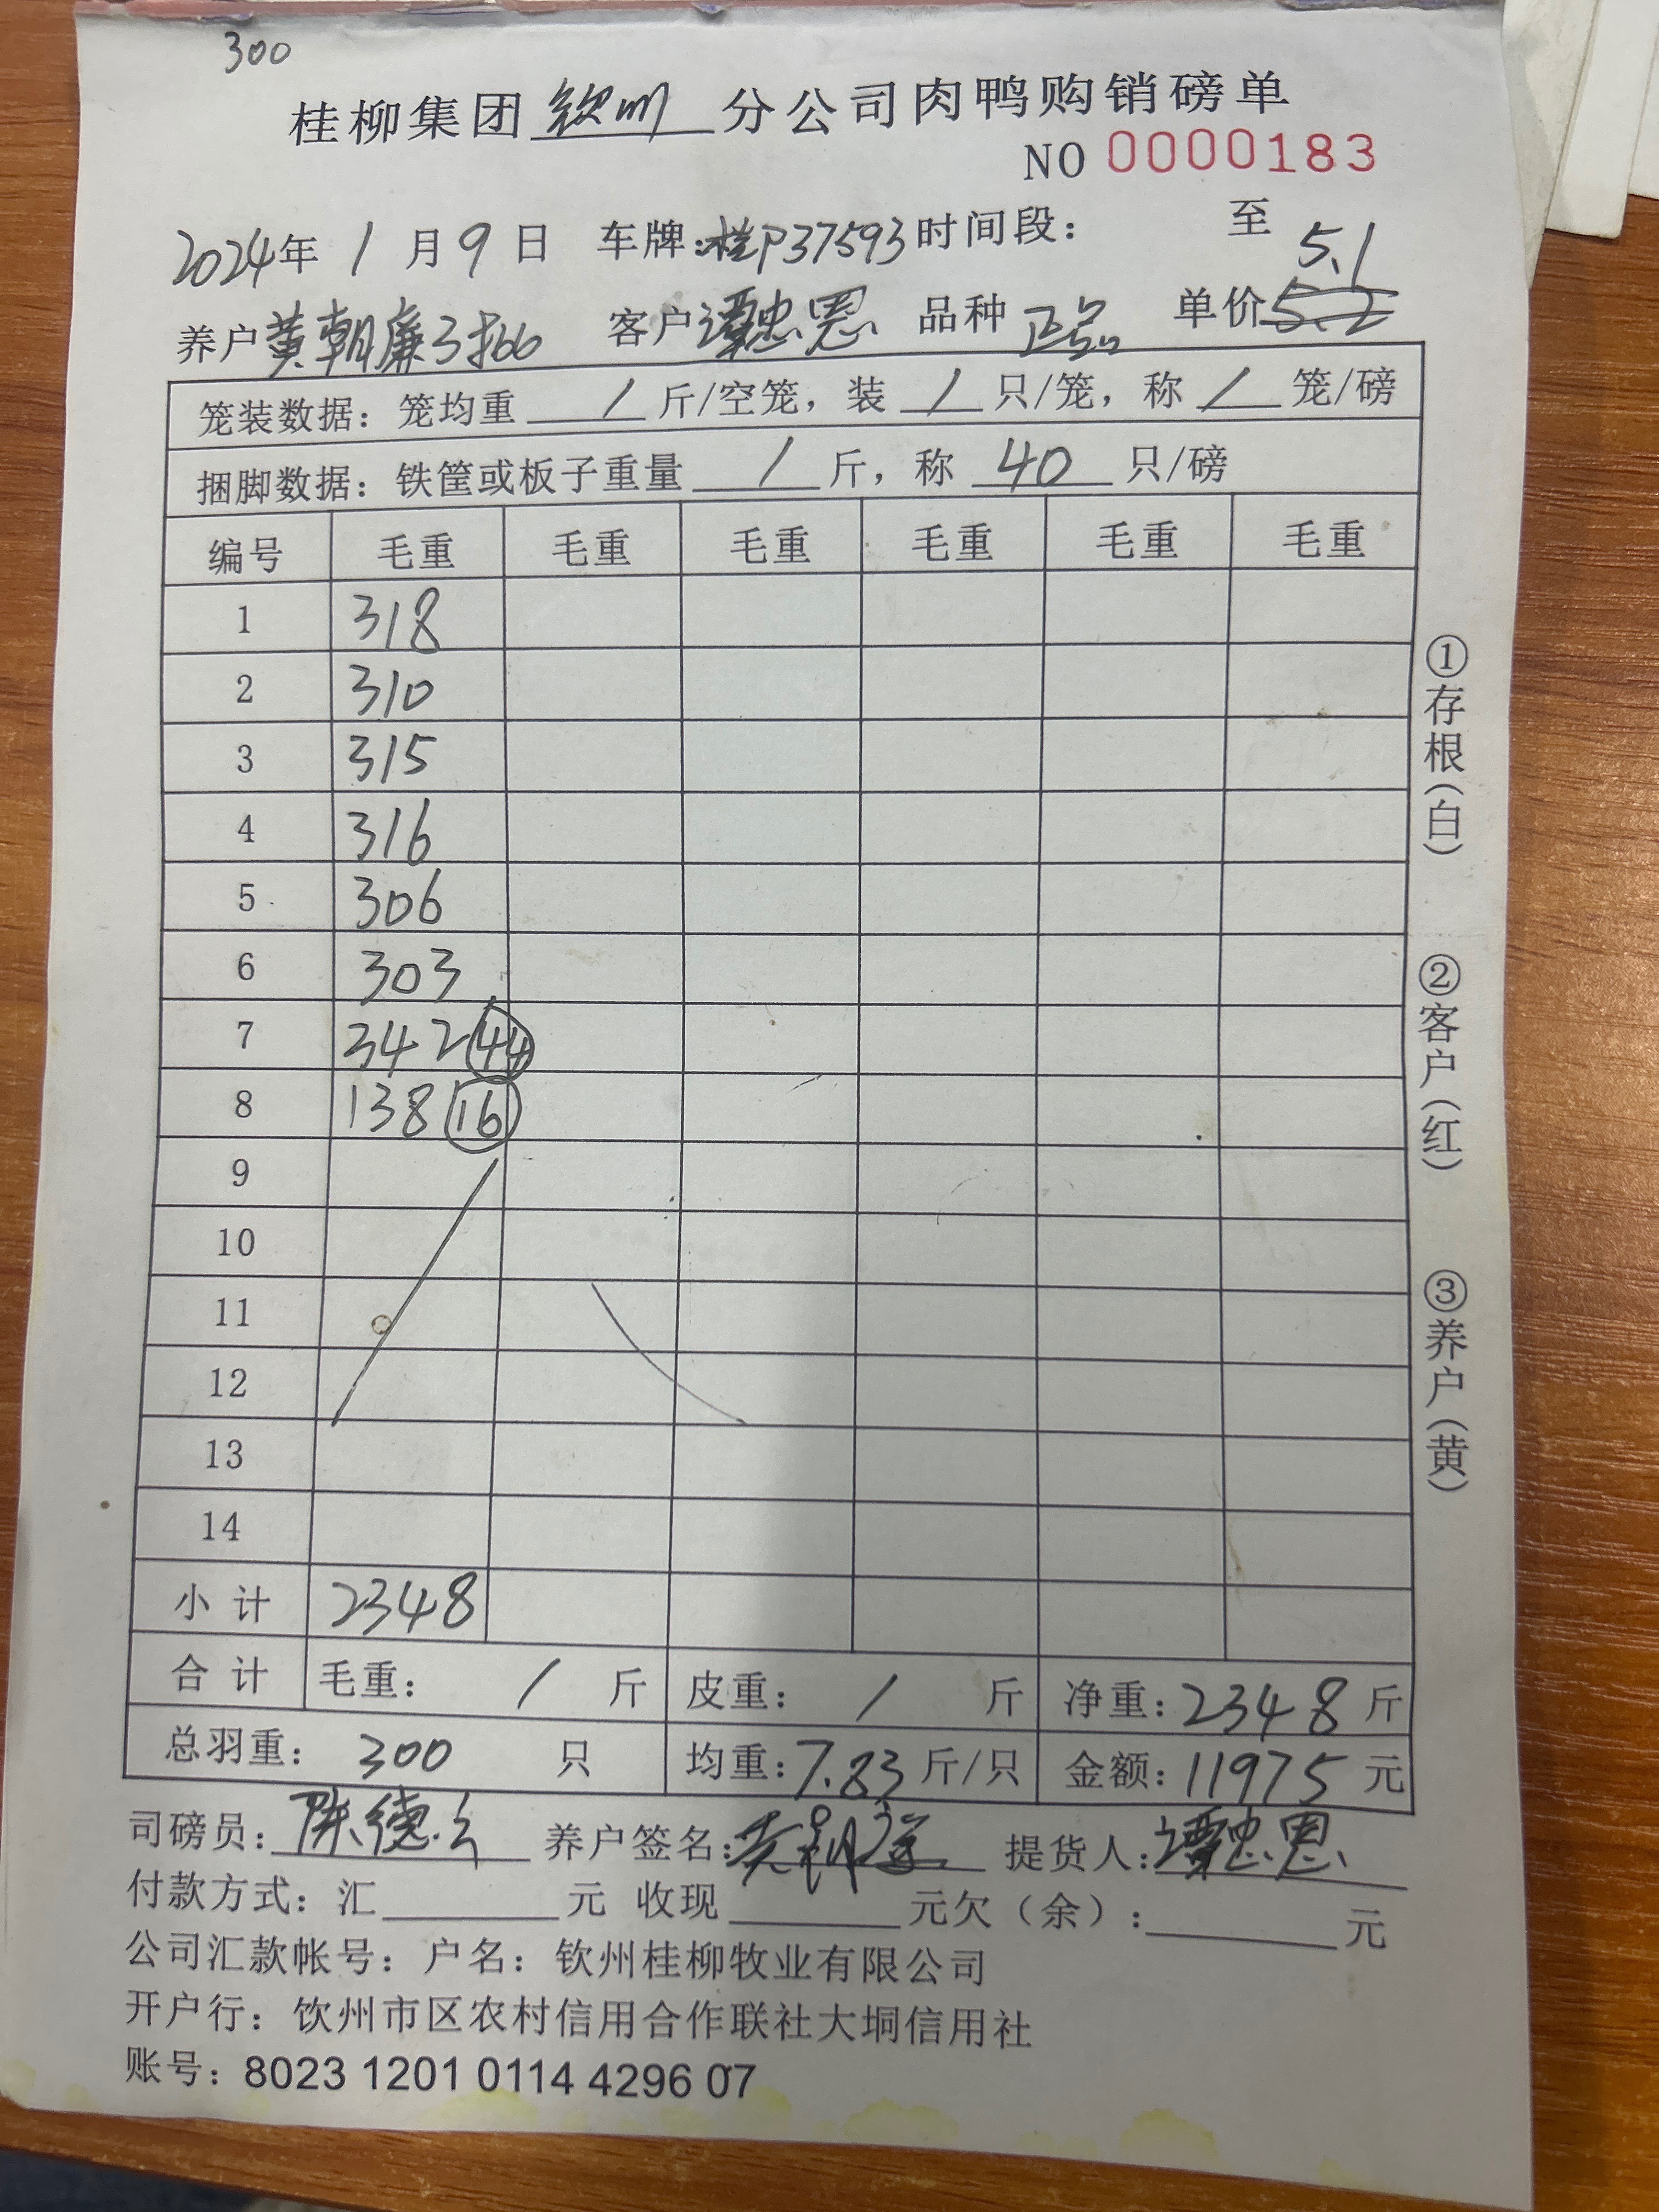 300
桂柳集团钦州分公司肉鸭购销磅单
NO 0000183
2024年 1 月 9 日 车牌:桂P37593 时间段: 至
5.1
养户黄朝廉3批 客户谭忠恩 品种 正品 单价5.2
笼装数据: 笼均重 / 斤/空笼, 装 / 只/笼, 称 / 笼/磅
捆脚数据: 铁筐或板子重量 / 斤, 称 40 只/磅
编号 毛重 毛重 毛重 毛重 毛重 毛重
1 318
2 310
3 315
4 316
5 306
6 303
7 342 44
8 138 16
9
10
11
12
13
14
小计 2348
合计 毛重: / 斤 皮重: / 斤 净重:2348斤
总羽重: 300 只 均重:7.83斤/只 金额:11975元
司磅员: 陈德 养户签名: 提货人:谭忠恩
付款方式: 汇 元 收现 元欠(余): 元
公司汇款帐号: 户名: 钦州桂柳牧业有限公司
开户行: 钦州市区农村信用合作联社大垌信用社
账号: 8023 1201 0114 4296 07
①存根(白)
②客户(红)
③养户(黄)